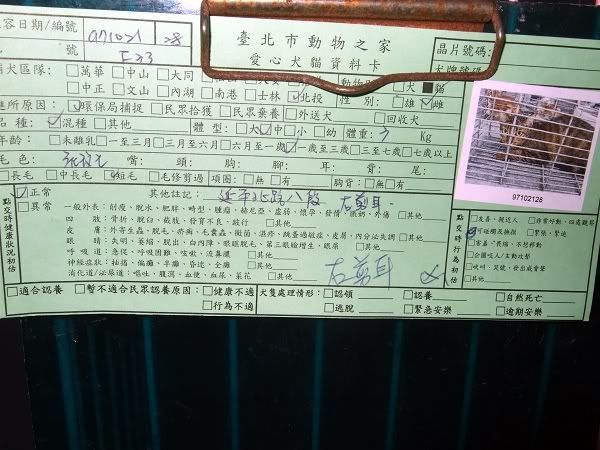 容日期/編號 971021 28 臺北市動物之家 晶片號碼:
號 E23 愛心犬貓資料卡 犬牌號
捕犬區隊: □萬華 □中山 □大同 動物別 □犬 ■貓
□中正 □文山 □內湖 □南港 □士林 ☑北投 性別: □雄 ☑雌
進所原因: ☑環保局捕捉 □民眾拾獲 □民眾棄養 □外送犬 □回收犬
品種: ☑混種 □其他 體型: □大 ☑中 □小 □幼 體重: 3 Kg
年齡: □未離乳 □一至三月 □三月至六月 □六月至一歲 ☑一歲至三歲 □三至七歲 □七歲以上
毛色: 嘴: 頭: 胸: 腳: 耳: 背: 尾:
□長毛 □中長毛 ☑短毛 □毛修剪過 項圈: □無 □有 胸背: □無 □有
97102128
點交時健康狀況初估
☑正常 其他註記: 延平北路八段 左剪耳.
□異常 一般外表: 削瘦、脫水、肥胖、畸型、腫瘤、赫尼亞、虛弱、懷孕、發情、外傷 □其他
四肢: 骨折、脫臼、截肢、發育不良、跛行 □其他
皮膚: 外寄生蟲、脫毛、疥癬、毛囊蟲、黴菌、濕疹、跳蚤過敏症、皮屑、內分泌失調 □其他
眼睛: 失明、萎縮、脫出、白內障、眼瞼脫毛、第三眼瞼增生、眼屎 □其他
呼吸道: 急促、呼吸困難、咳嗽、流鼻膿 □其他
神經症狀: 抽搐、偏癱、半癱、昏迷、全癱 □其他
消化道/泌尿道: 嘔吐、腹瀉、血便、血尿、菜花 □其他
左剪耳
點交時行為初估
□友善、親近人 □非常好動、四處觀察
☑可碰觸及撫摸 □緊張、緊迫
□害羞、畏縮、不想移動
□企圖咬人/主動攻擊
□吠叫、哭號、發出威脅聲
□其他
□適合認養 □暫不適合民眾認養原因: □健康不適 犬隻處理情形: □認領 □認養 □自然死亡
□行為不適 □逃脫 □緊急安樂 □逾期安樂